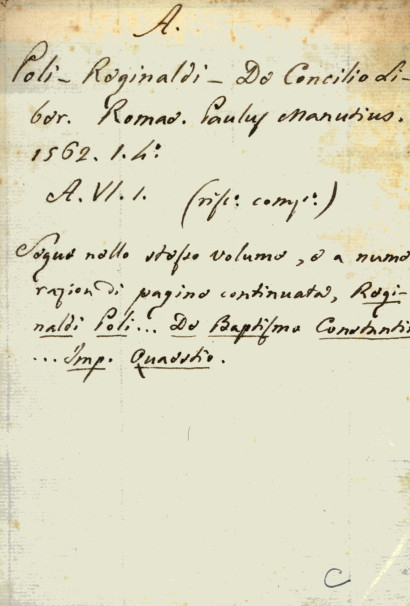 A.
Poli - Reginaldi - De Concilio Li-
ber. Romae. Paulus Manutius.
1562. 1. 4°.
A. VI. 1. (risc.° comp.°)
Segue nello stesso volume, e a nume
razion di pagine continuata, Regi-
naldi Poli... De Baptismo Constantin
... Imp. Quaestio.
C